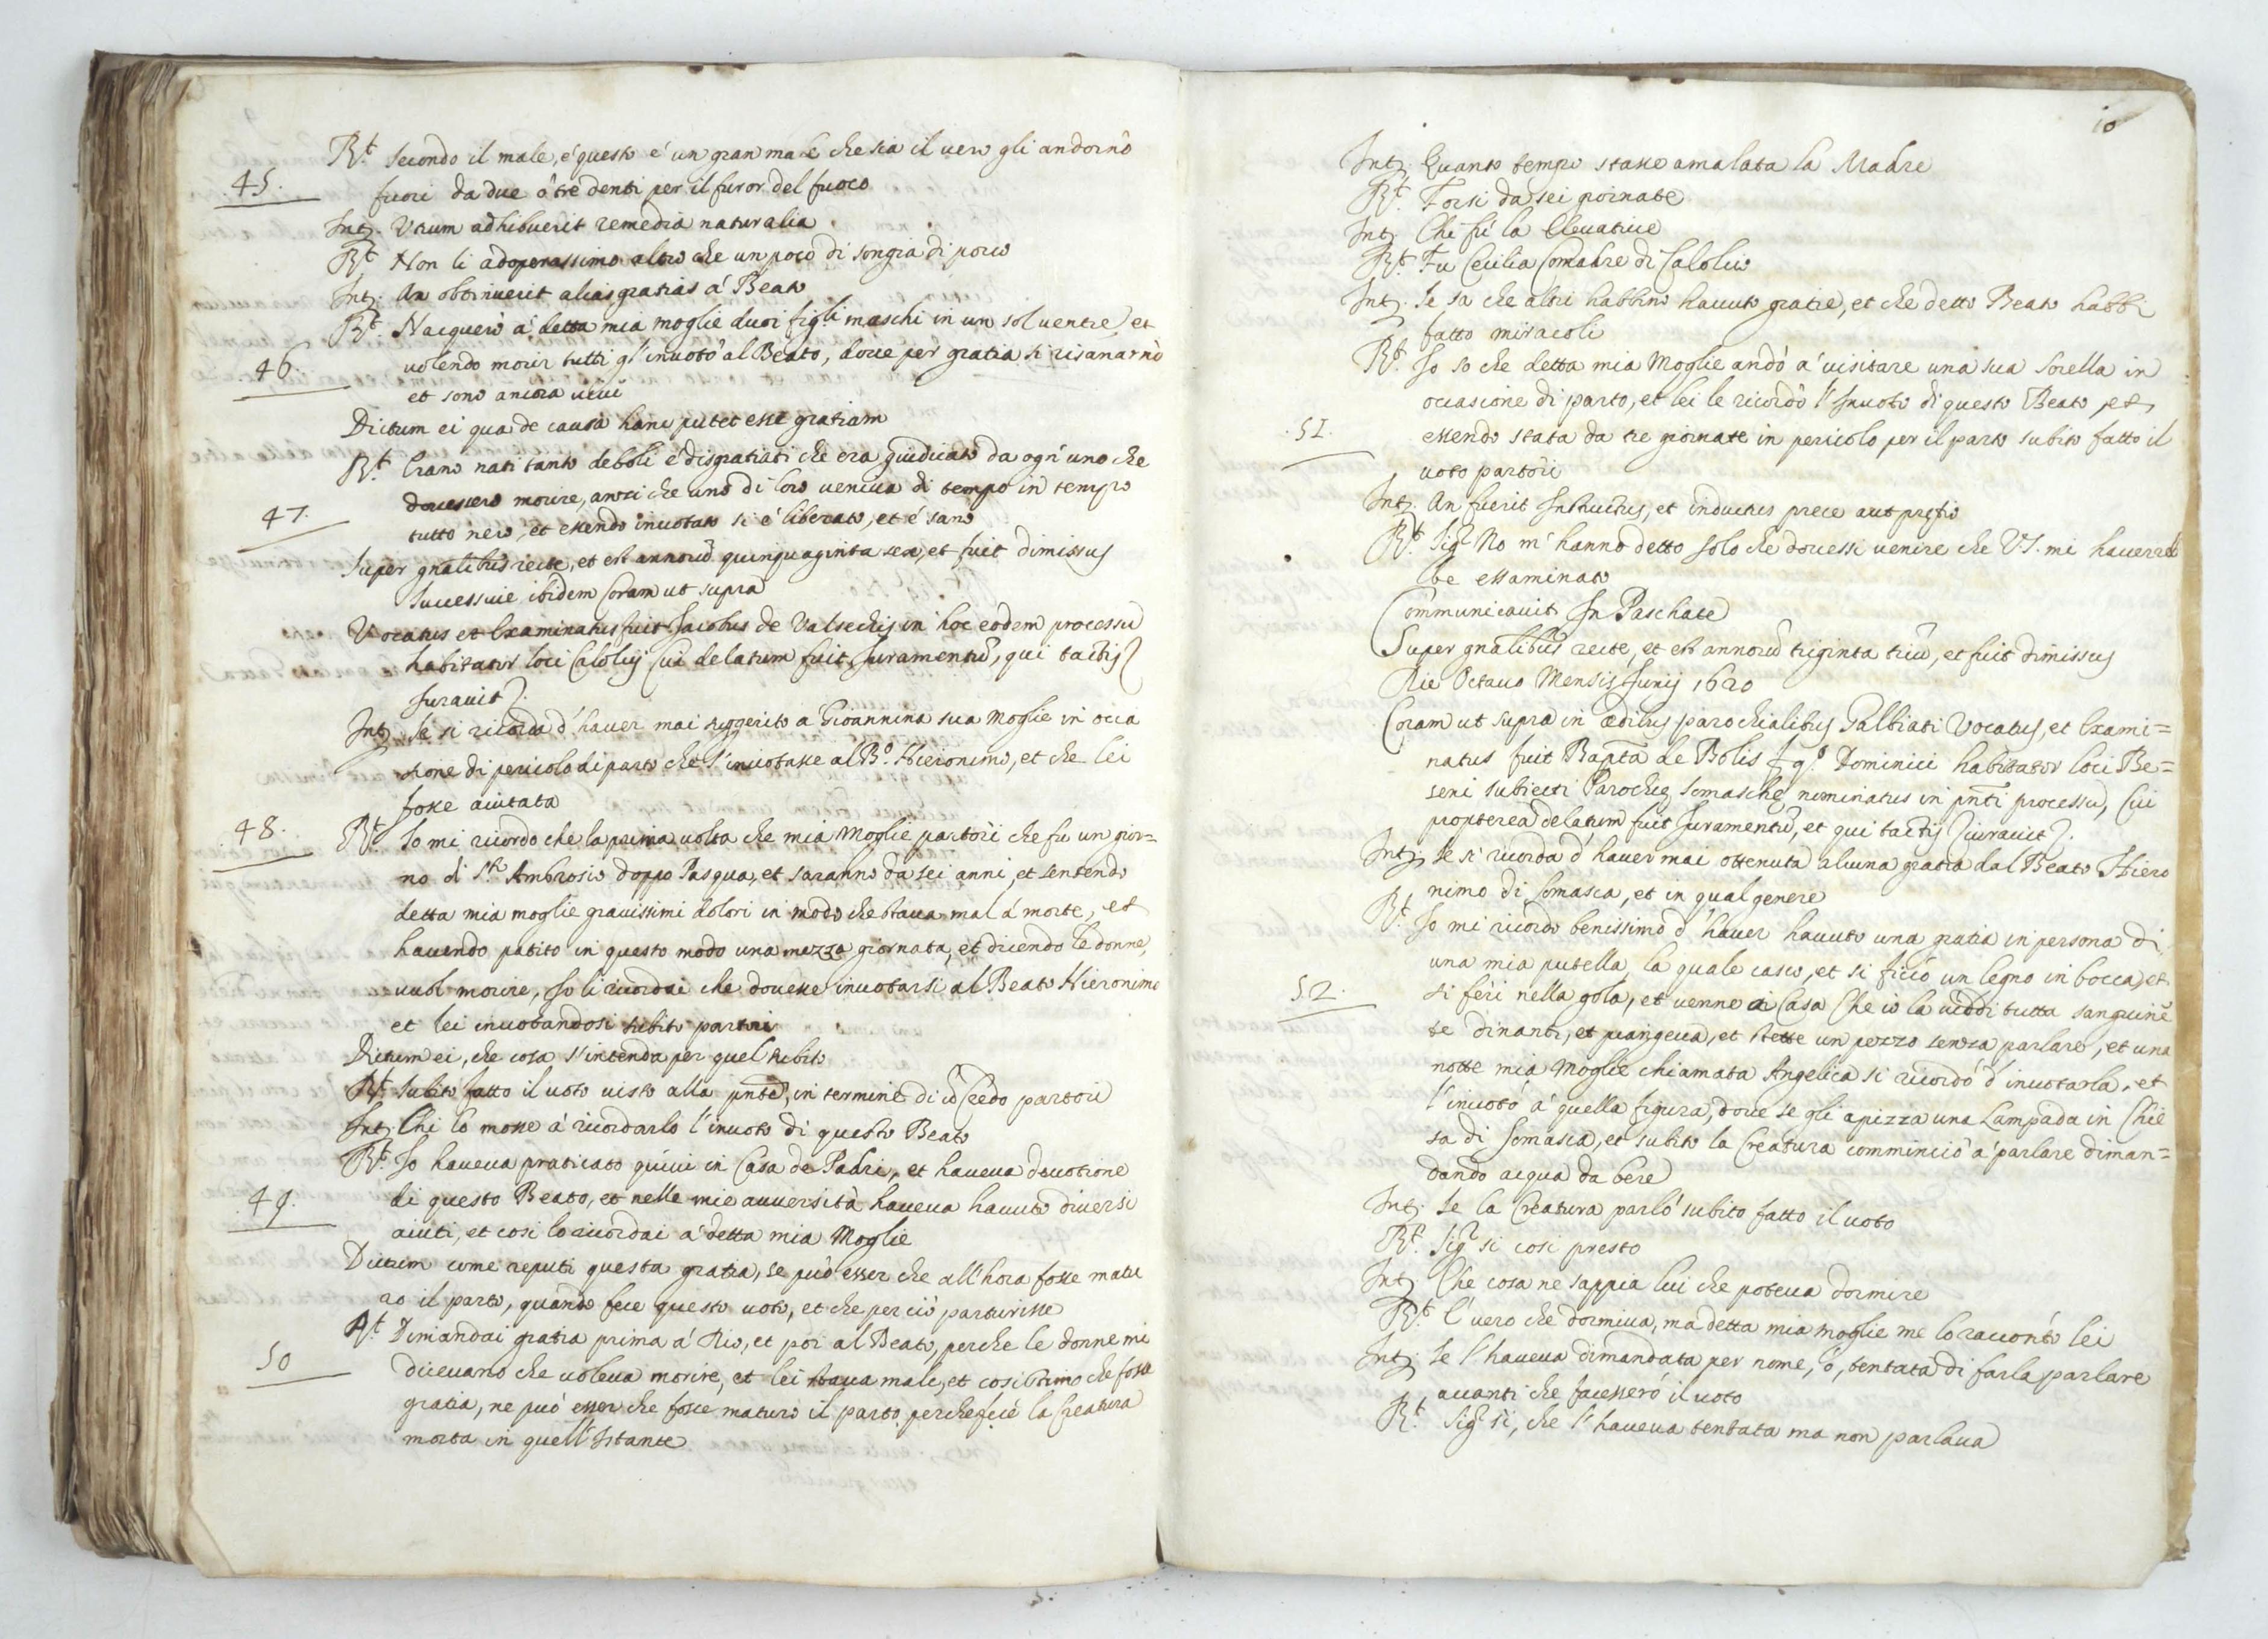 R.t Secondo il male, e questo e un gran male che sia il vero gli andornò
45. fuori da due o tre denti per il furor del fuoco
Int. Utrum adhibuerit remedia naturalia
R.t Non li adoperassimo altro che un poco di songia di porco
Int. An obtinuerit alias gratias à Beato
R.t Nacquero à detta mia moglie duoi figli maschi in un sol ventre, et
46. volendo morir tutti gl'invotò al Beato, dove per gratia si risanarnò
et sono ancora vivi
Dictum ei qua de causa hanc putet esse gratiam
R.t Erano nati tanto deboli e disgratiati che era giudicato da ogn'uno che
dovessero morire, anzi che uno di loro veniva di tempo in tempo
47. tutto nero, et essendo invotato si è liberato, et è sano
Super gnalibus recte, et est annorũ quinquaginta sex, et fuit dimissus
Successive ibidem Coram ut supra
Vocatus et Examinatus fuit Jacobus de Valsechis in hoc eodem processu
habitator loci Calolcij Cui delatum fuit Juramentũ, qui tactis
Juravit
Int. Se si ricorda d'haver mai suggerito a Gioannina sua Moglie in occa
sione di pericolo di parto che s'invotasse al B.o Hieronimo, et che lei
fosse aiutata
48. R.t Io mi ricordo che la prima volta che mia Moglie partorì che fu un gior=
no di S.to Ambrosio doppo Pasqua, et saranno da sei anni, et sentendo
detta mia moglie gravissimi dolori in modo che stava mal à morte, et
havendo patito in questo modo una mezza giornata, et dicendo le donne,
vuol morire, Io li ricordai che dovesse invotarsi al Beato Hieronimo
et lei invotandosi subito partorì
Dictum ei, che cosa s'intenda per quel subito
R.t Subito fatto il voto visto alla pnte, in termine di ũ Credo partorì
Int. Chi lo mosse à ricordarli l'invoto di questo Beato
R.t Io haveva praticato quivi in Casa de Padri, et haveva devotione
49. di questo Beato, et nelle mie avversità haveva havuto diversi
aiuti, et così lo ricordai a detta mia Moglie
Dictum come reputi questa gratia, se può esser che all'hora fosse matu
ro il parto, quando fece questo voto, et che per ciò parturisse
R.t Dimandai gratia prima à Dio, et poi al Beato, perche le donne mi
50 dicevano che voleva morire, et lei stava male, et così stimo che fosse
gratia, ne può esser che fosse maturo il parto perche fece la Creatura
morta in quell'Istante
10
Int. Quanto tempo stasse amalata la Madre
R.t Forsi da sei giornate
Int. Chi fù la Elevatrice
R.t Fu Cecilia Comadre di Calolcio
Int. Se sa che altri habbino havuto gratie, et che detto Beato habbi
fatto miracoli
R.t Io so che detta mia Moglie andò a visitare una sua Sorella in
occasione di parto, et lei le ricordò l'Invoto di questo Beato, et
51. essendo stata da tre giornate in pericolo per il parto subito fatto il
voto partorì
Int. An fuerit Instructus, et inductus prece aut pretio
R.t Sig.r No m'hanno detto solo che dovessi venire che V.S. mi haverreb
be essaminato
Communicavit In Paschate
Super gnalibus recte, et est annorũ triginta triũ, et fuit dimissus
Die Octavo Mensis Junij 1620
Coram ut supra in ædibus parochialibus Galbiati Vocatus, et Exami=
natus fuit Bapta de Bolis f. q.o Dominici habitator loci Be=
seni subiecti Parochię Somaschę nominatus in pnti processu, Cui
propterea delatum fuit Juramentũ, et qui tactis iuravit.
Int. Se si ricorda d'haver mai ottenuta alcuna gratia dal Beato Hiero
nimo di Somasca, et in qual genere
R.t Io mi ricordo benissimo d'haver havuto una gratia in persona di
una mia putella, la quale cascò, et si ficcò un legno in bocca, et
52. si ferì nella gola, et venne à Casa Che io la viddi tutta sanguinẽ
te dinanti, et piangeva, et stette un pezzo senza parlare, et una
notte mia Moglie chiamata Angelica si ricordò d'invotarla, et
l'invotò a quella figura, dove se gli apizza una Lampada in Chie
sa di Somasca, et subito la Creatura comminciò à parlare diman=
dando acqua da bere
Int. Se la Creatura parlò subito fatto il voto
R.t Sig.r si così presto
Int. Che cosa ne sappia lui che poteva dormire
R.t E' vero che dormiva, ma detta mia moglie me lo raccontò lei
Int. Se l'haveva dimandata per nome, ò, tentata di farla parlare
avanti che facessero il voto
R.t Sig.r sì, che l'haveva tentata ma non parlava